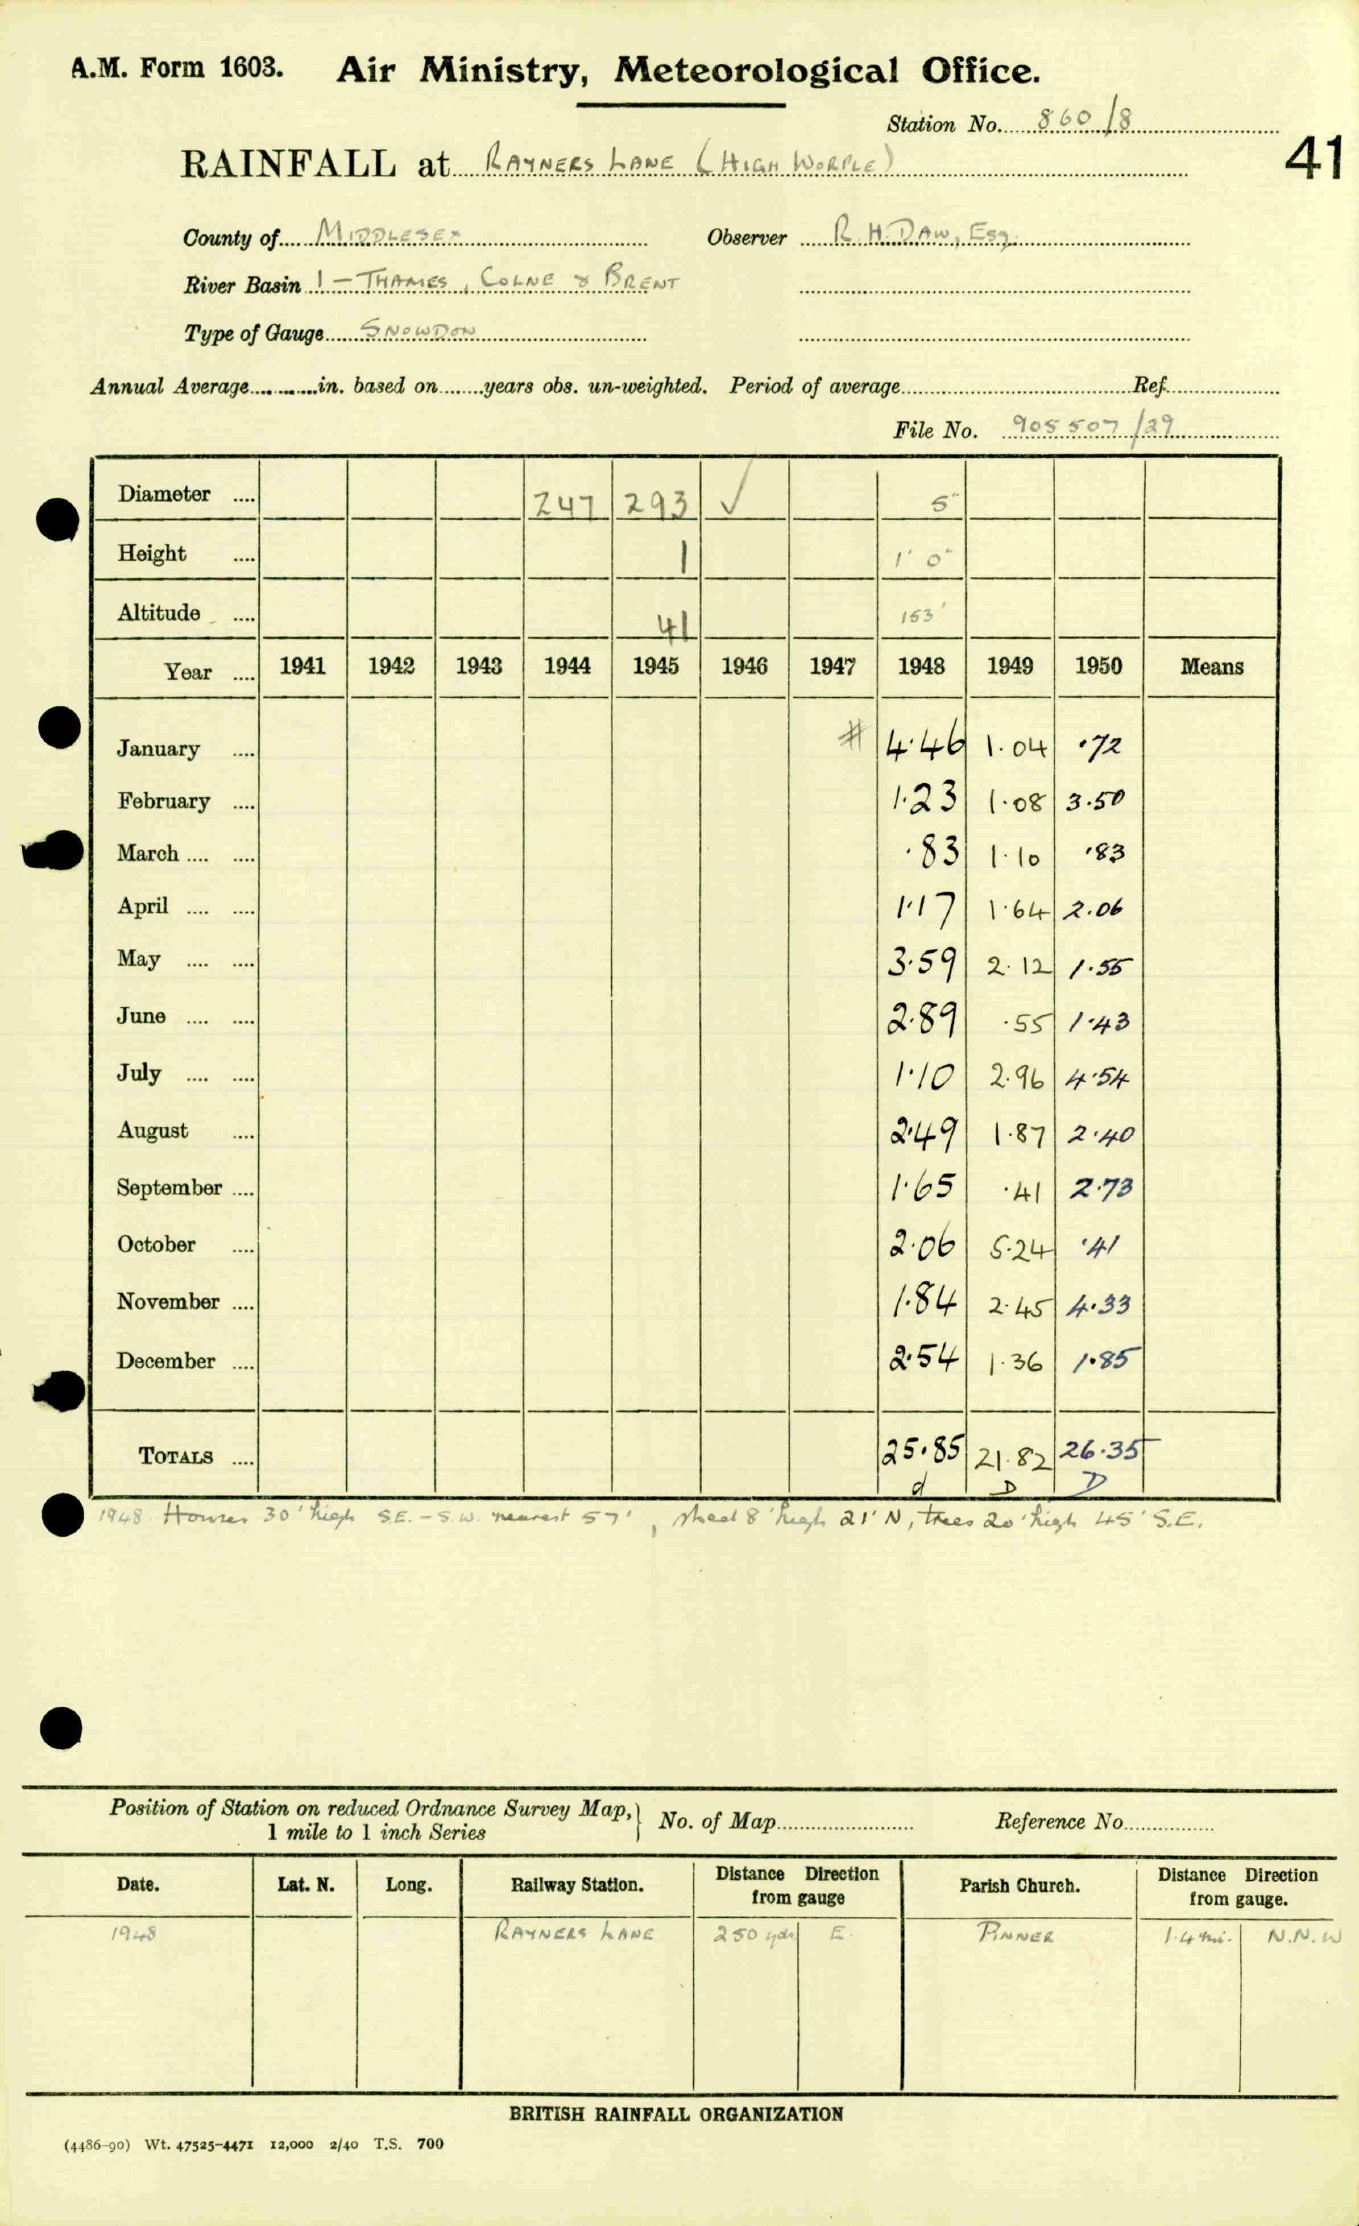 A.M. Form 1603. Air Ministry, Meteorological Office.
Station No. 860/8
41
RAINFALL at RAYNERS LANE (HIGH WORPLE)
County of MIDDLESEX Observer R.H. DAW, Esq.
River Basin 1 - THAMES, COLNE & BRENT
Type of Gauge SNOWDON
Annual Average in. based on years obs. un-weighted. Period of average Ref.
File No. 905507/29
Diameter 247 293 ✓ 5"
Height 1 1' 0"
Altitude 41 153'
Year 1941 1942 1943 1944 1945 1946 1947 1948 1949 1950 Means
January # 4.46 1.04 .72
February 1.23 1.08 3.50
March .83 1.10 .83
April 1.17 1.64 2.06
May 3.59 2.12 1.55
June 2.89 .55 1.43
July 1.10 2.96 4.54
August 2.49 1.87 2.40
September 1.65 .41 2.73
October 2.06 5.24 .41
November 1.84 2.45 4.33
December 2.54 1.36 1.85
TOTALS 25.85 21.82 26.35
d D D
1948 Houses 30' high S.E. - S.W. nearest 57', shed 8' high 21' N, trees 20' high 45' S.E.
Position of Station on reduced Ordnance Survey Map, 1 mile to 1 inch Series } No. of Map Reference No
Date. Lat. N. Long. Railway Station. Distance Direction from gauge Parish Church. Distance Direction from gauge.
1948 RAYNERS LANE 250 yds. E. PINNER 1.4 mi. N.N.W
BRITISH RAINFALL ORGANIZATION
(4486-90) Wt. 47525-4471 12,000 2/40 T.S. 700